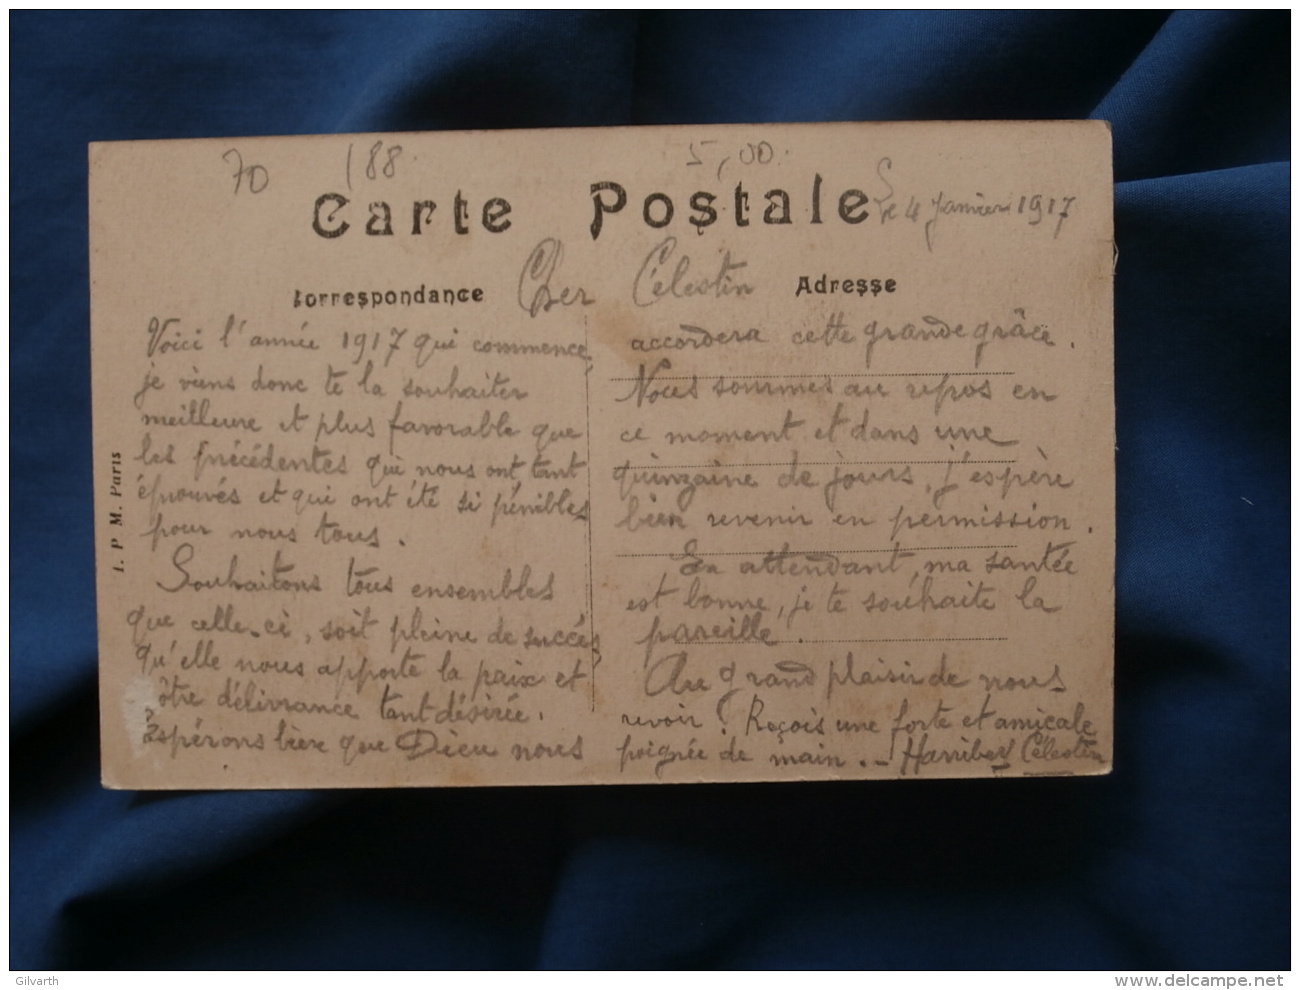 70 188 5,00
Carte Postale
Le 4 Janvier 1917
Correspondance
Cher Célestin
Adresse
Voici l'année 1917 qui commence,
je viens donc te la souhaiter
meilleure et plus favorable que
les précédentes qui nous ont tant
éprouvés et qui ont été si pénibles
pour nous tous.
Souhaitons tous ensembles
que celle-ci, soit pleine de succés,
qu'elle nous apporte la paix et
nôtre délivrance tant désirée.
Espérons bien que Dieu nous
accordera cette grande grâce.
Nous sommes au repos en
ce moment et dans une
quinzaine de jours, j'espère
bien revenir en permission.
En attendant, ma santée
est bonne, je te souhaite la
pareille.
Au grand plaisir de nous
revoir! Reçois une forte et amicale
poignée de main. - Célestin
I. P. M. Paris
Gilvarth
www.delcampe.net